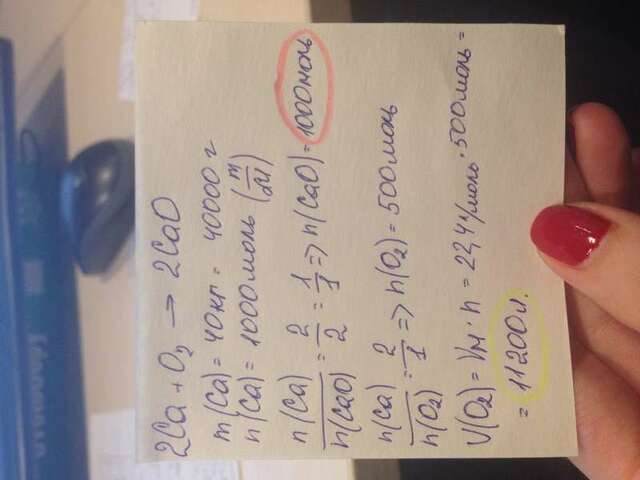 2Ca + O₂ → 2CaO
m(Ca) = 40кг = 40000 г
n(Ca) = 1000моль (m/M)
n(Ca)/n(CaO) = 2/2 = 1/1 => n(CaO) = 1000моль
n(Ca)/n(O₂) = 2/1 => n(O₂) = 500моль
V(O₂) = Vм · n = 22,4л/моль · 500моль =
= 11200л.